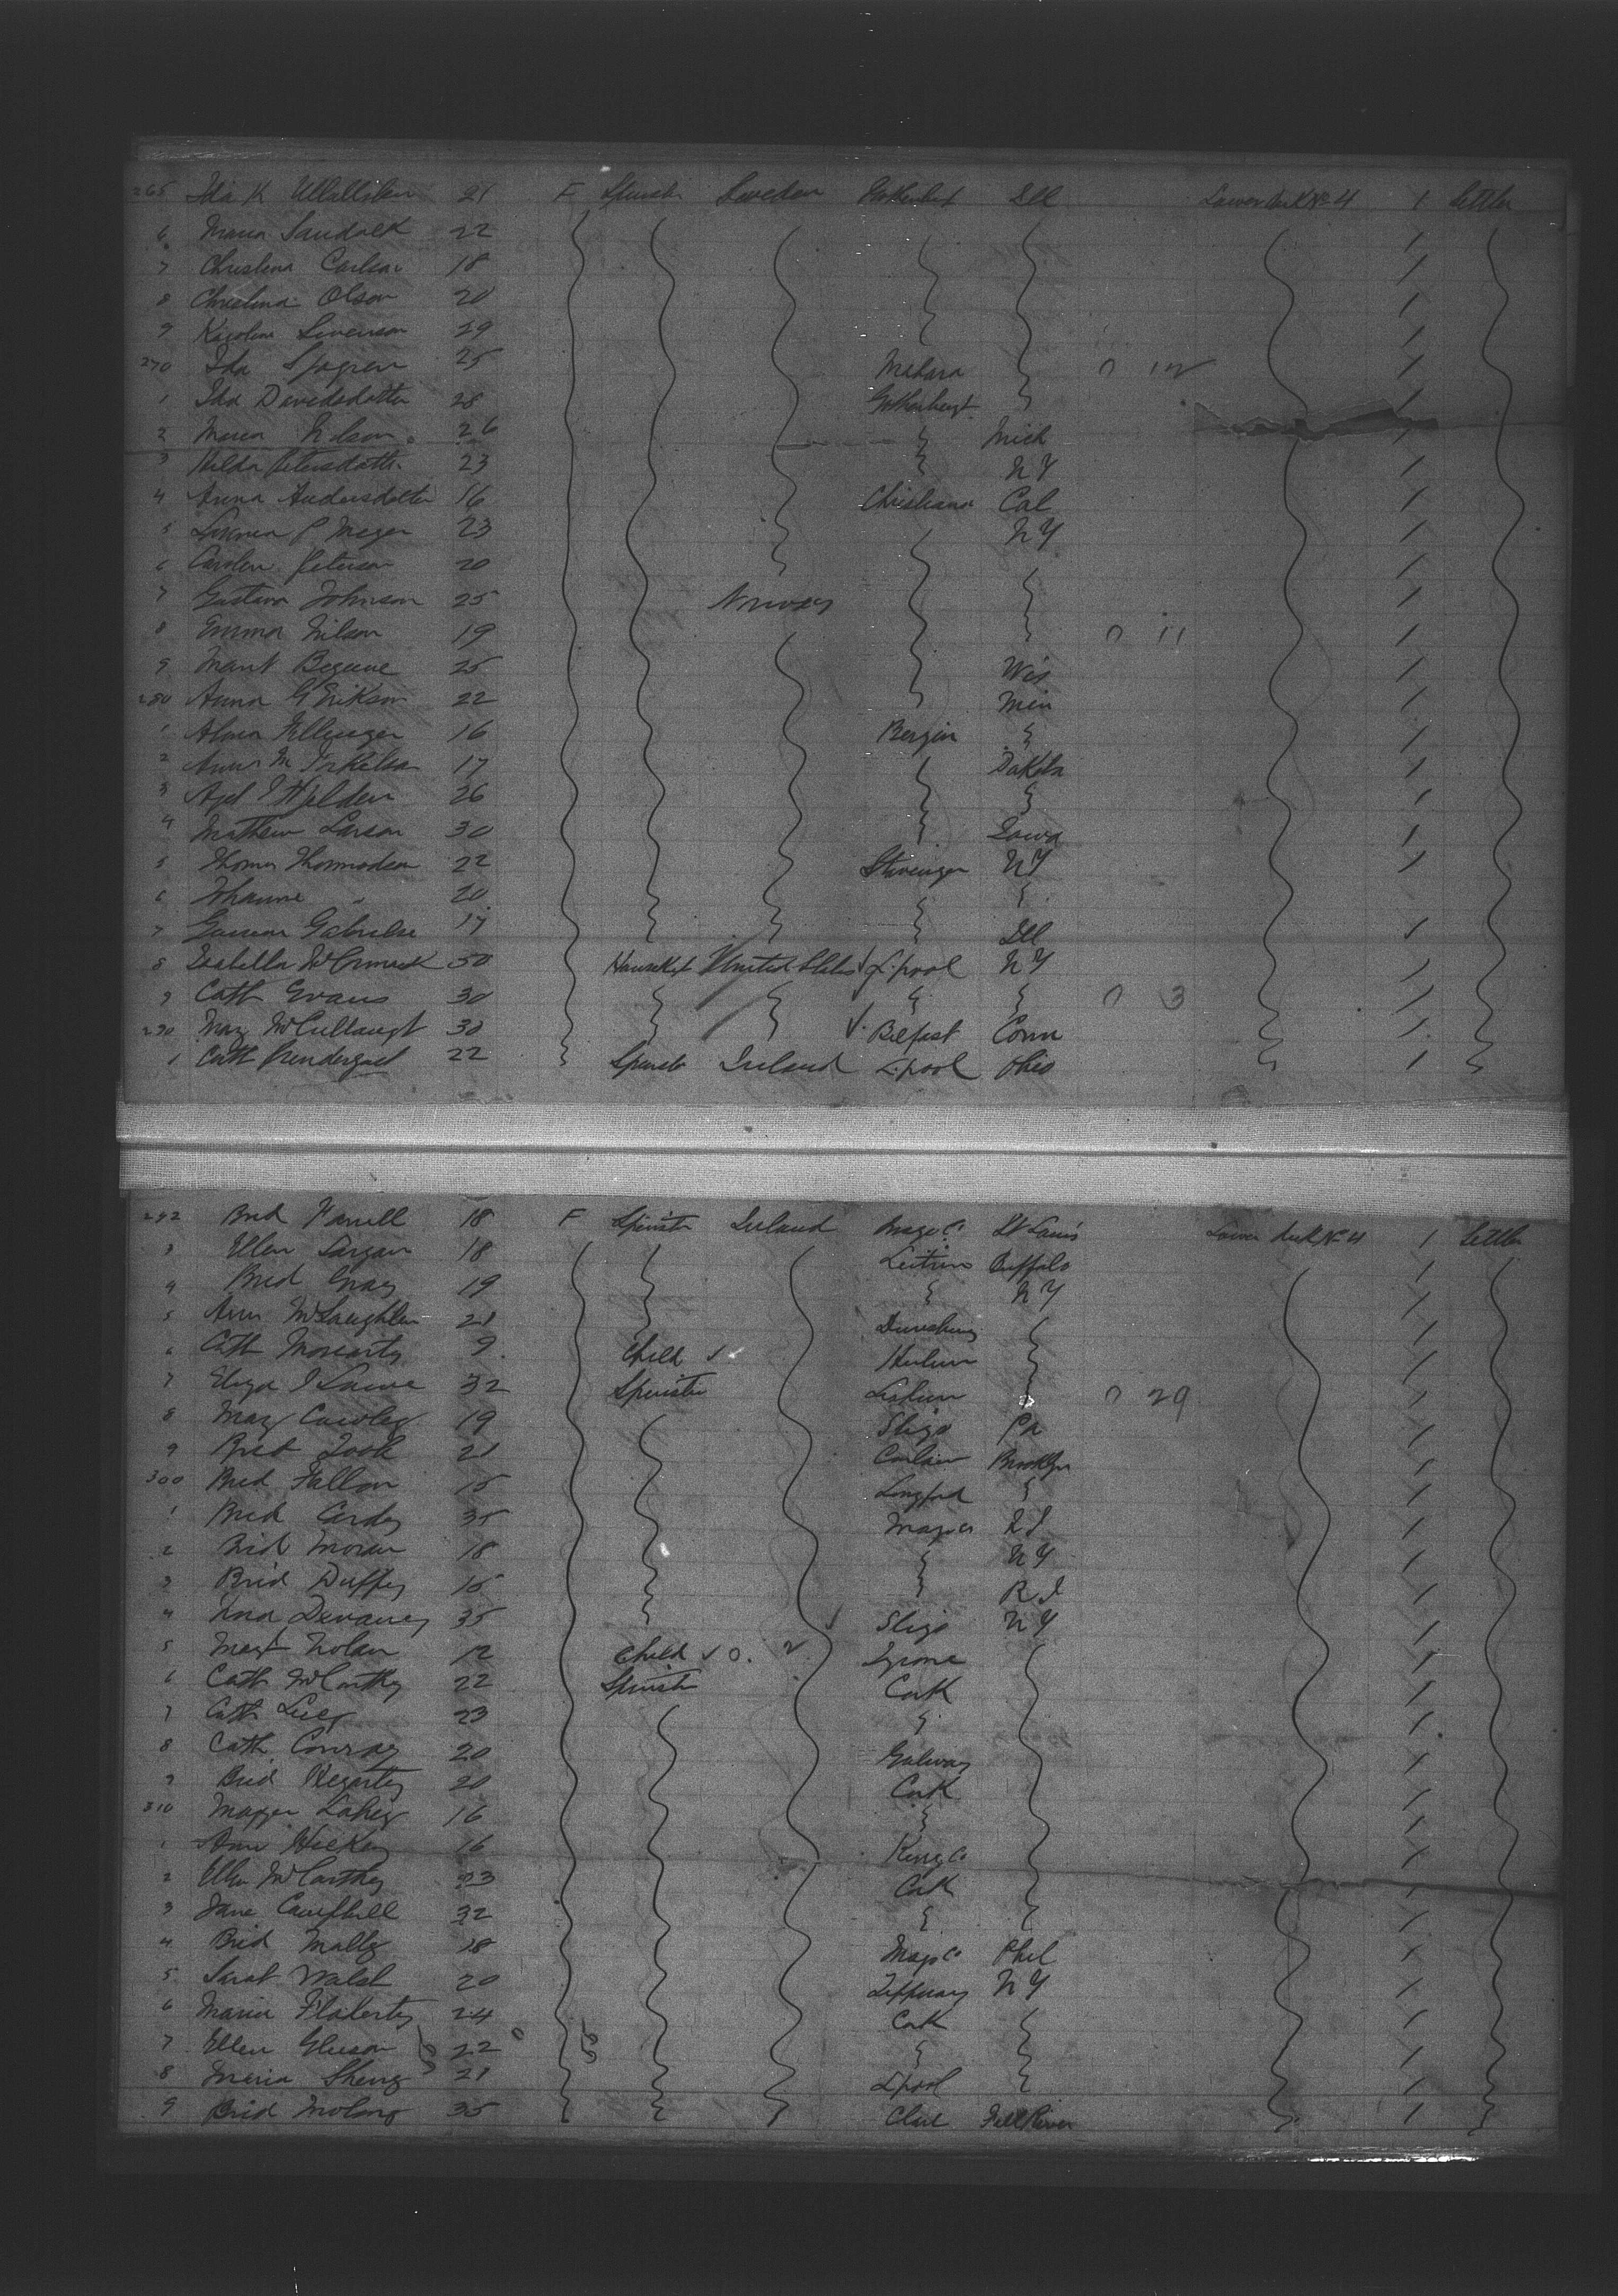 265 Ida K 21 F Spinster Sweden Gothenbg Ill Lower deck No 4 1 Settler
6 Maria Sandolk 22 /
7 Christina Carlson 18 /
8 Christina Olson 20 /
9 Karolina Svenson 29 /
270 Ida 25 ∩ 12 /
1 Ida Davidsdotter 28 Gothenbyt /
2 Maria Nilson 26 Mich /
3 Hilda Petersdottr 23 N Y /
4 Anna Andersdotter 16 Christiana Cal /
5 P Meyer 23 N Y /
6 Carolin Peterson 20 /
7 Gustava Johnson 25 Norway /
8 Emma Nilson 19 ∩ 11 /
9 Marit 25 Wis /
280 Anna G Erikson 22 Min /
1 Alma Ellinger 16 Bergin /
2 Anna M Torkelson 17 Dakota /
3 26 /
4 Mathew Larson 30 Iowa /
5 Thomas Thormodsen 22 Stavenger N Y /
6 Johanne " 20
7 Gabrielse 17 Ill /
8 Isabella McCormack 50 Housekp United States L.pool N Y /
9 Cath Evans 30 ∩ 3 /
290 May McCullaugt 30 Belfast Conn /
1 Cath Prendergast 22 Spinstr Ireland L.pool Ohio 1
292 Brid Farrell 18 F Spinster Ireland Mayo Co St Louis Lower deck No 4 1 Settler
3 Ellen 18 Leitrim Buffalo /
4 Brid Gray 19 N Y /
5 Ann McLaughlin 21 /
6 Cath Moriarty 9 Child /
7 Eliza J 32 Spinster Lisburn ∩ 29 /
8 May Cawley 19 Sligo Pa /
9 21 Brooklyn /
300 Brid Fallon 15 Longford /
1 Brid 35 Mayo Co R I /
2 Brid Moran 18 N Y /
3 Brid Duffy 15 R I /
4 Nora Devaney 35 Sligo N Y /
5 Nolan 12 Child Tyrone /
6 Cath McCarthy 22 Spinster Cork /
7 Cath Lucy 23 /
8 Cath Conroy 20 Galway /
9 Brid Hegarty 20 Cork /
310 Lahey 16 /
1 Ann Hickey 16 Kings Co /
2 Ellen McCarthy 23 Cork /
3 Jane Campbell 32 /
4 Brid Mally 18 Mayo Co Phil /
5 Sarah Walsh 20 Tippuary N Y /
6 Maria Flaherty 24 Cork /
7 Ellen Gleeson 22 /
8 Maria 21 L.pool /
9 Brid Molony 35 Clare Fall River /